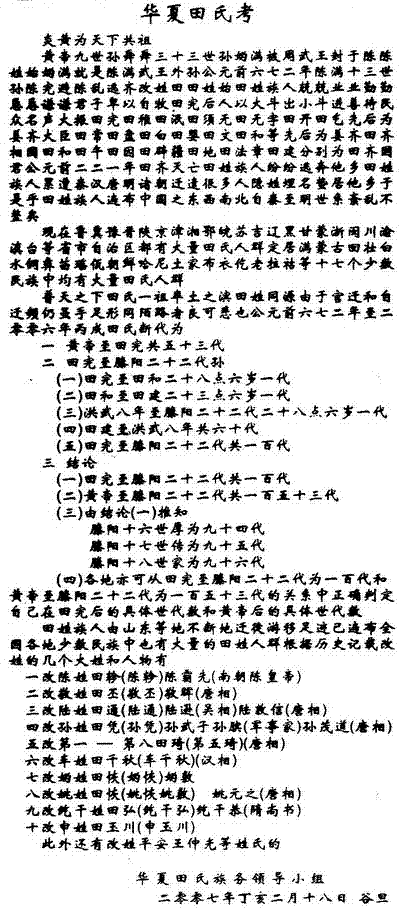 华夏田氏考
炎黄为天下共祖
黄帝九世孙舜舜三十三世孙妫满被周武王封于陈陈
姓始妫满就是陈满武王外孙公元前六七二年陈满十三世
孙陈完避陈乱逃齐改姓田田姓始田姓族人就就业业勤勤
恳恳谦谦君子卑以自牧田完后人以大斗出小斗进善待民
众名声大振田完田稚田泯田须无田无宇田开田乞先后为
姜齐大臣田常田盘田白田婴田文田和等先后为姜齐田齐
相国田和田午田因田辟疆田地田法章田建分别为田齐国
君公元前二二一年田齐灭亡田姓族人纷纷逃奔他乡田姓
族人累遭秦汉唐明诸朝迁遣很多人隐姓埋名蛰居他乡于
是乎田姓族人遍布中国之东西南北自秦至明世系紊乱不
堪矣
现在鲁冀豫晋陕京津湘鄂皖苏吉辽黑甘蒙浙闽川渝
滇台等省市自治区都有大量田氏人群定居满蒙古回壮白
水侗彝苗瑶佤朝鲜哈尼土家布衣仡老拉祜等十七个少数
民族中均有大量田氏人群
普天之下田氏一祖率土之滨田姓同源由于官迁和自
迁频仍虽手足形同陌路者良可悉也公元前六七二年至二
零零六年丙戌田氏断代为
一 黄帝至田完共五十三代
二 田完至滕阳二十二代孙
(一)田完至田和二十八点六岁一代
(二)田和至田建二十三点六岁一代
(三)洪武八年至滕阳二十二代二十八点六岁一代
(四)田建至洪武八年共六十代
(五)田完至滕阳二十二代共一百代
三 结论
(一)田完至滕阳二十二代共一百代
(二)黄帝至滕阳二十二代共一百五十三代
(三)由结论(一)推知
滕阳十六世厚为九十四代
滕阳十七世传为九十五代
滕阳十八世家为九十六代
(四)各地亦可从田完至滕阳二十二代为一百代和
黄帝至滕阳二十二代为一百五十三代的关系中正确判定
自己在田完后的具体世代数和黄帝后的具体世代数
田姓族人由山东等地不断地迁徙游移足迹已遍布全
国各地少数民族中也有大量的田姓人群根据历史记载改
姓的几个大姓和人物有
一改陈姓田轸(陈轸)陈霸先(南朝陈皇帝)
二改敬姓田丕(敬丕)敬晖(唐相)
三改陆姓田通(陆通)陆逊(吴相)陆敦信(唐相)
四改孙姓田凭(孙凭)孙武子孙膑(军事家)孙茂道(唐相)
五改第一 — 第八田琦(第五琦)(唐相)
六改车姓田千秋(车千秋)(汉相)
七改妫姓田恢(妫恢)妫敷
八改姚姓田恢(姚恢姚敷) 姚元之(唐相)
九改纯干姓田弘(纯干弘)纯干恭(隋尚书)
十改申姓田玉川(申玉川)
此外还有改姓平安王仲光等姓氏的
华夏田氏族务领导小组
二零零七年丁亥二月十八日 谷旦